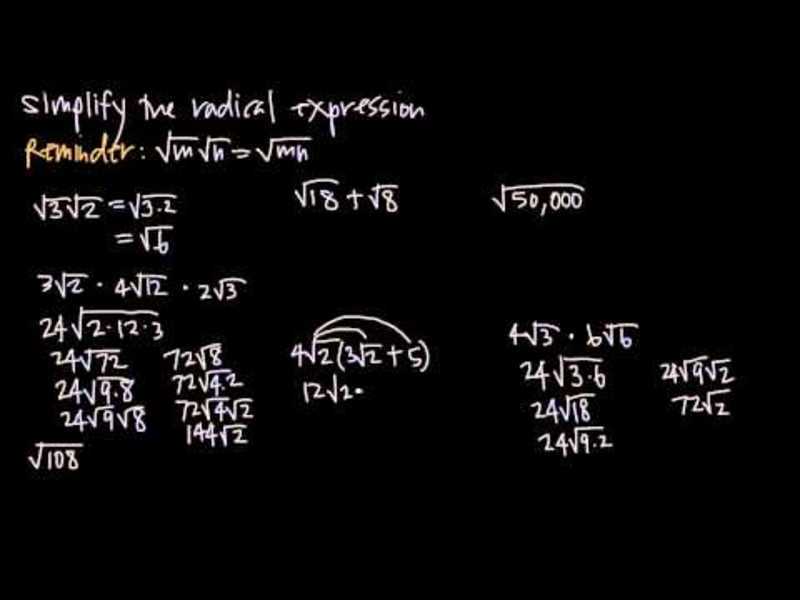 Simplify the radical expression
Reminder: √m √n = √mn
√3 √2 = √3·2
= √6
√18 + √8
√50,000
3√2 · 4√12 · 2√3
24√2·12·3
24√72
24√9·8
24√9 √8
72√8
72√4·2
72√4 √2
144√2
√108
4√2 (3√2 + 5)
12√2·
4√3 · 6√6
24√3·6
24√18
24√9·2
24√9 √2
72√2